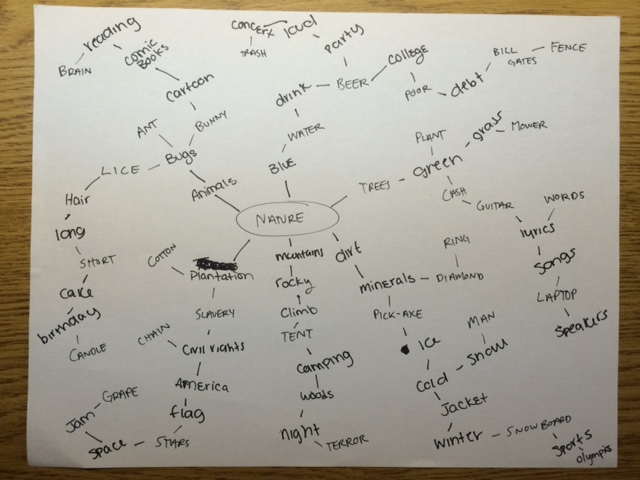 concert
loud
reading
TRASH
party
COLLEGE
comic
BOOKS
BRAIN
BILL
GATES
FENCE
cartoon
drink
BEER
POOR
debt
ANT
BUNNY
WATER
PLANT
grass
MOWER
Bugs
BLUE
LICE
green
Animals
TREES
CASH
GUITAR
WORDS
Hair
NATURE
lyrics
long
COTTON
mountains
dirt
RING
songs
SHORT
Plantation
rocky
minerals
DIAMOND
cake
LAPTOP
birthday
SLAVERY
climb
PICK-AXE
MAN
speakers
CHAIN
TENT
CANDLE
civil rights
ICE
snow
camping
cold
GRAPE
AMerica
woods
Jacket
Jam
flag
SPACE
STARS
night
TERROR
winter
SNOWBOARD
sports
olympics